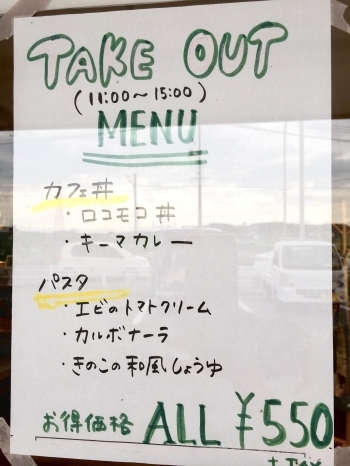 TAKE OUT
(11:00~15:00)
MENU
カフェ丼
・ロコモコ丼
・キーマカレー
パスタ
・エビのトマトクリーム
・カルボナーラ
・きのこの和風しょうゆ
お得価格 ALL ¥550
+ Tax